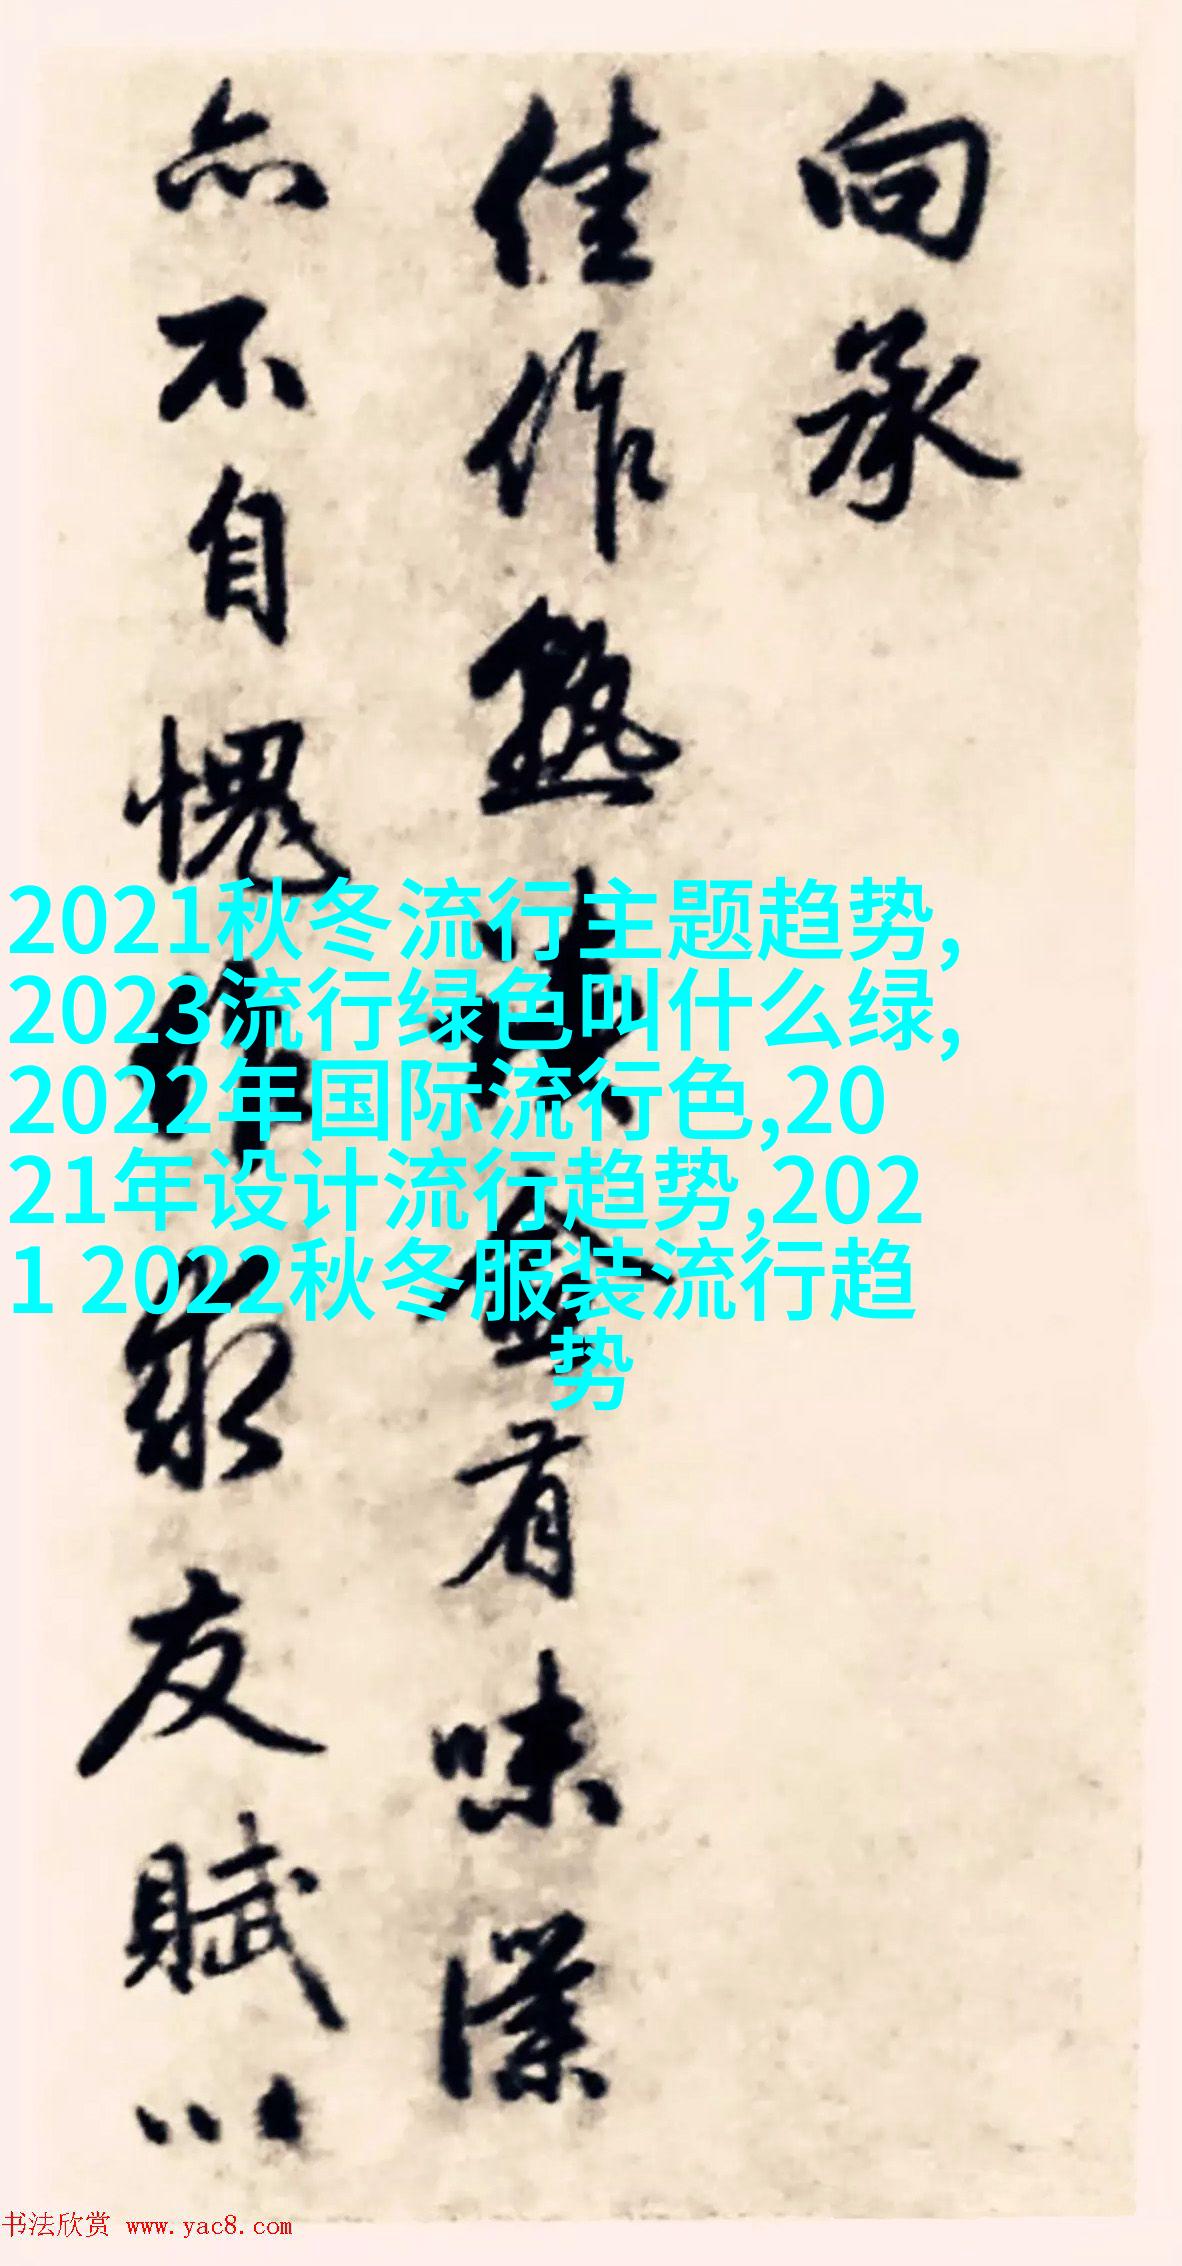 向承
佳作熟读奎有味仆
亦不自愧作报友赋以
2021秋冬流行主题趋势,
2023流行绿色叫什么绿,
2022年国际流行色,20
21年设计流行趋势,202
1 2022秋冬服装流行趋
势
书法欣赏 www.yac8.com